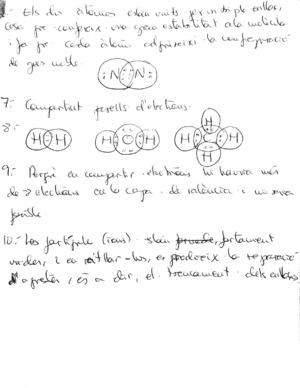 Els dos àtoms estan units per un triple enllaç,
cosa que confereix una gran estabilitat a la molècula
i fa que cada àtom adquireixi la configuració
de gas noble.
N N
7.- Compartint parells d'electrons.
8.-
H H H O H H C H H H
9.- Perquè en compartir electrons hi hauria més
de electrons en la capa de valència i no seria
possible
10.- Les partícules (ions) estan fortament
unides, i en ratllar-les, es produeix la separació
, és a dir, el trencament dels enllaços